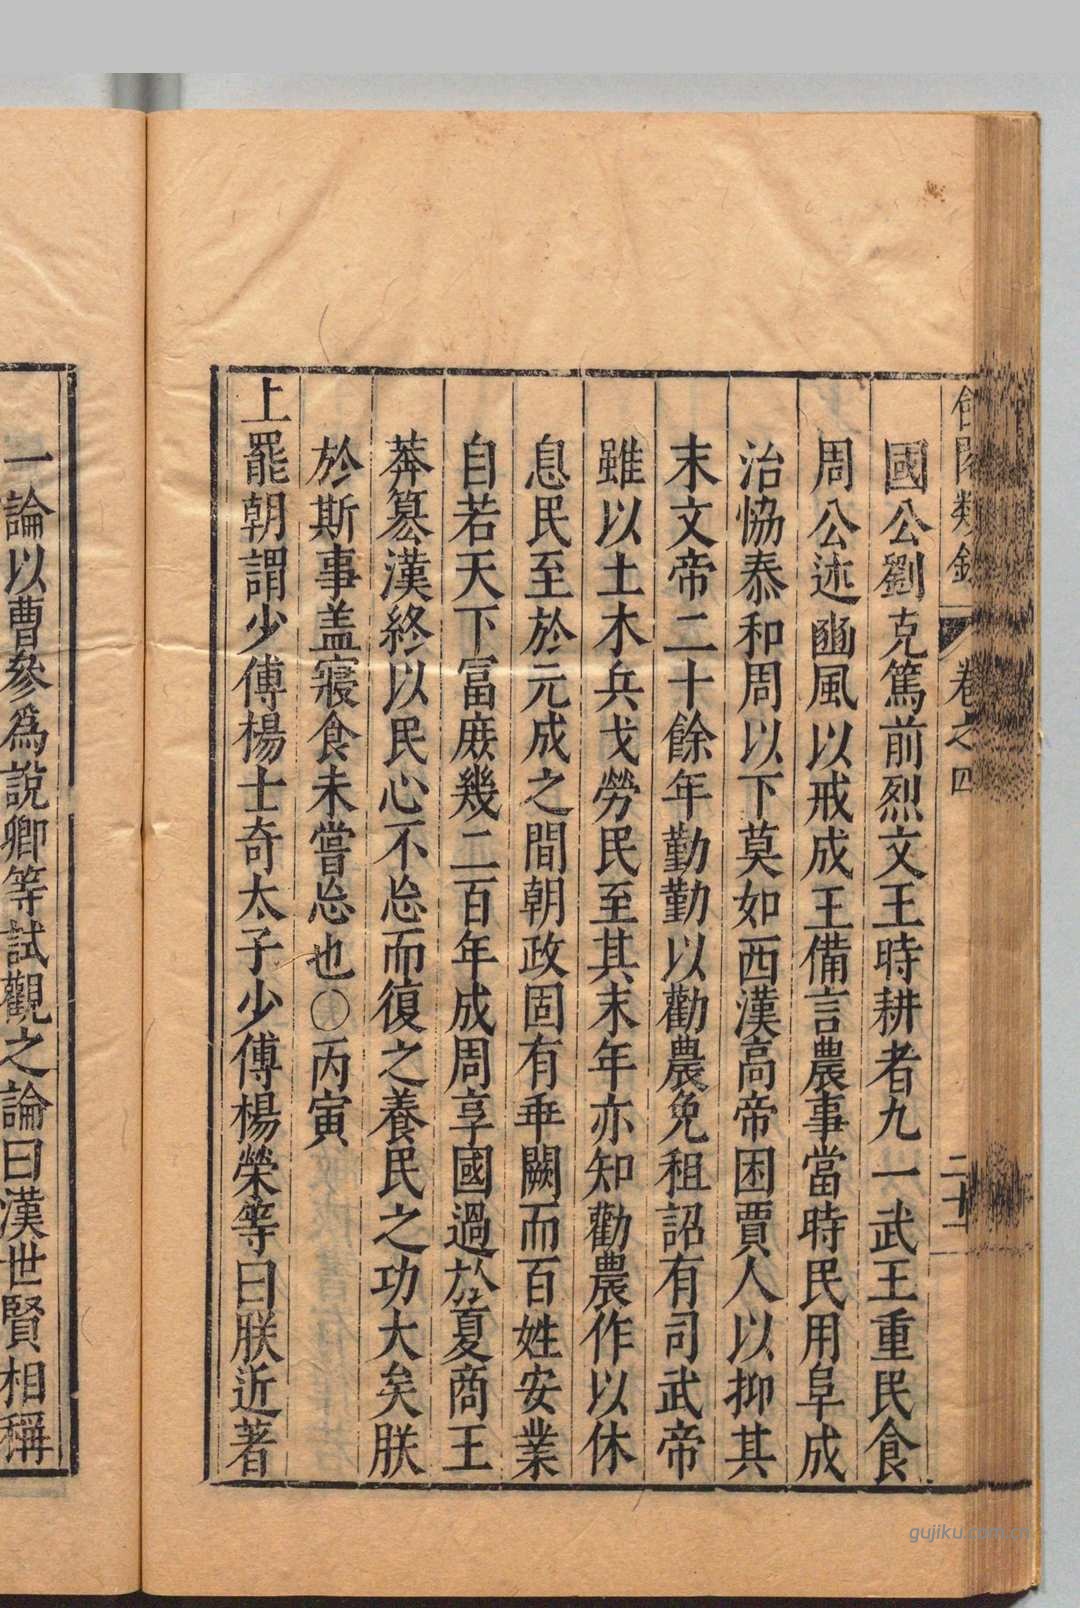 國公劉克篤前烈文王時耕者九一武王重民食
周公述豳風以戒成王備言農事當時民用阜成
治恊泰和周以下莫如西漢高帝困賈人以抑其
末文帝二十餘年勤勤以勸農免租詔有司武帝
雖以土木兵戈勞民至其末年亦知勸農作以休
息民至於元成之間朝政固有乖闕而百姓安業
自若天下富庶幾二百年成周享國過於夏商王
莽篡漢終以民心不忘而復之養民之功大矣朕
於斯事盖寢食未嘗忘也〇丙寅
上罷朝謂少傅楊士奇太子少傅楊榮等曰朕近著
一論以曹參為說卿等試觀之論曰漢世賢相稱
卷之四
二十二
gujiku.com.cn